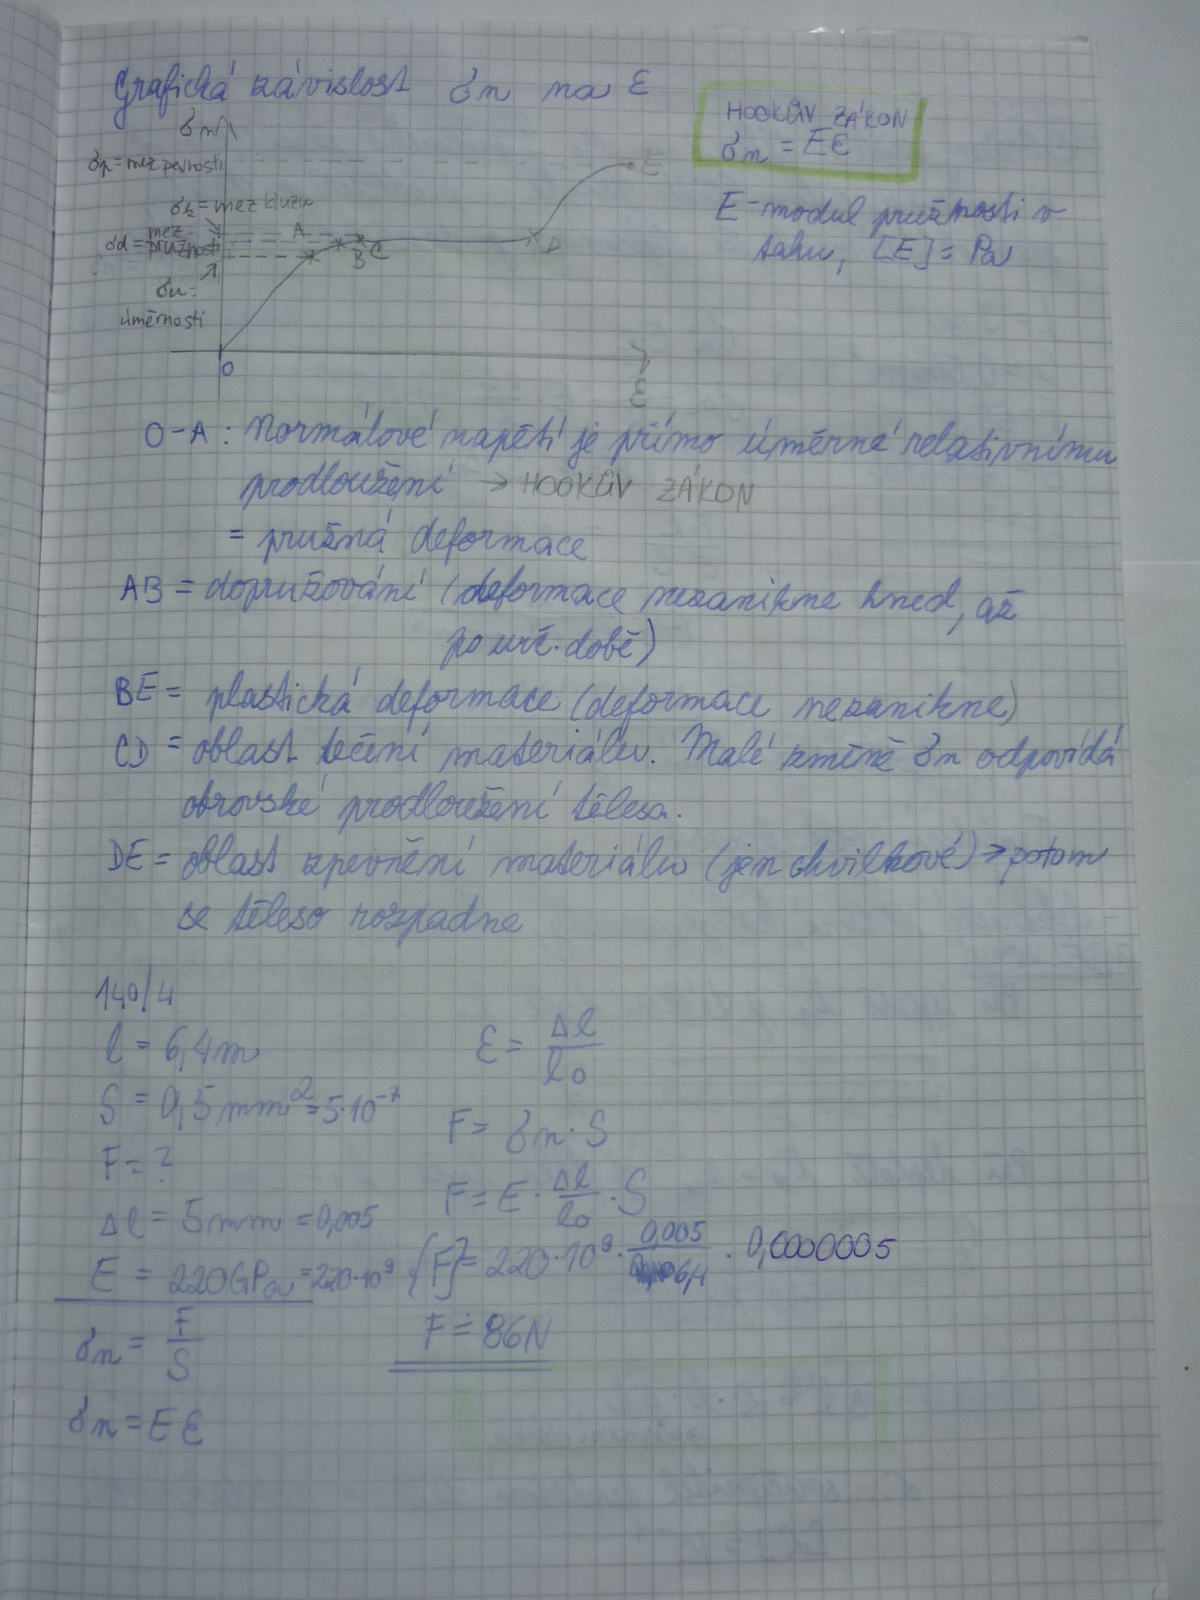 Grafická závislost σn na ε
HOOKŮV ZÁKON
σn = Eε
E-modul pružnosti v
tahu, [E] = Pa
σn
σp = mez pevnosti
σk = mez kluzu
σd = mez pružnosti
σu =
úměrnosti
A
B
C
D
E
0
ε
O-A: Normálové napětí je přímo úměrné relativnímu
prodloužení → HOOKŮV ZÁKON
= pružná deformace
AB = dopružování (deformace nezanikne hned, až
po urč. době)
BE = plastická deformace (deformace nezanikne)
CD = oblast tečení materiálu. Malé změně σn odpovídá
obrovské prodloužení tělesa.
DE = oblast zpevnění materiálu (jen chvilkové) → potom
se těleso rozpadne
140/4
l = 6,4m
S = 0,5mm² = 5·10⁻⁷
F = ?
Δl = 5mm = 0,005
E = 220GPa = 220·10⁹
σn = F/S
σn = Eε
ε = Δl/l₀
F = σn · S
F = E · Δl/l₀ · S
{F} = 220·10⁹ · 0,005/6,4 · 0,0000005
F ≐ 86N